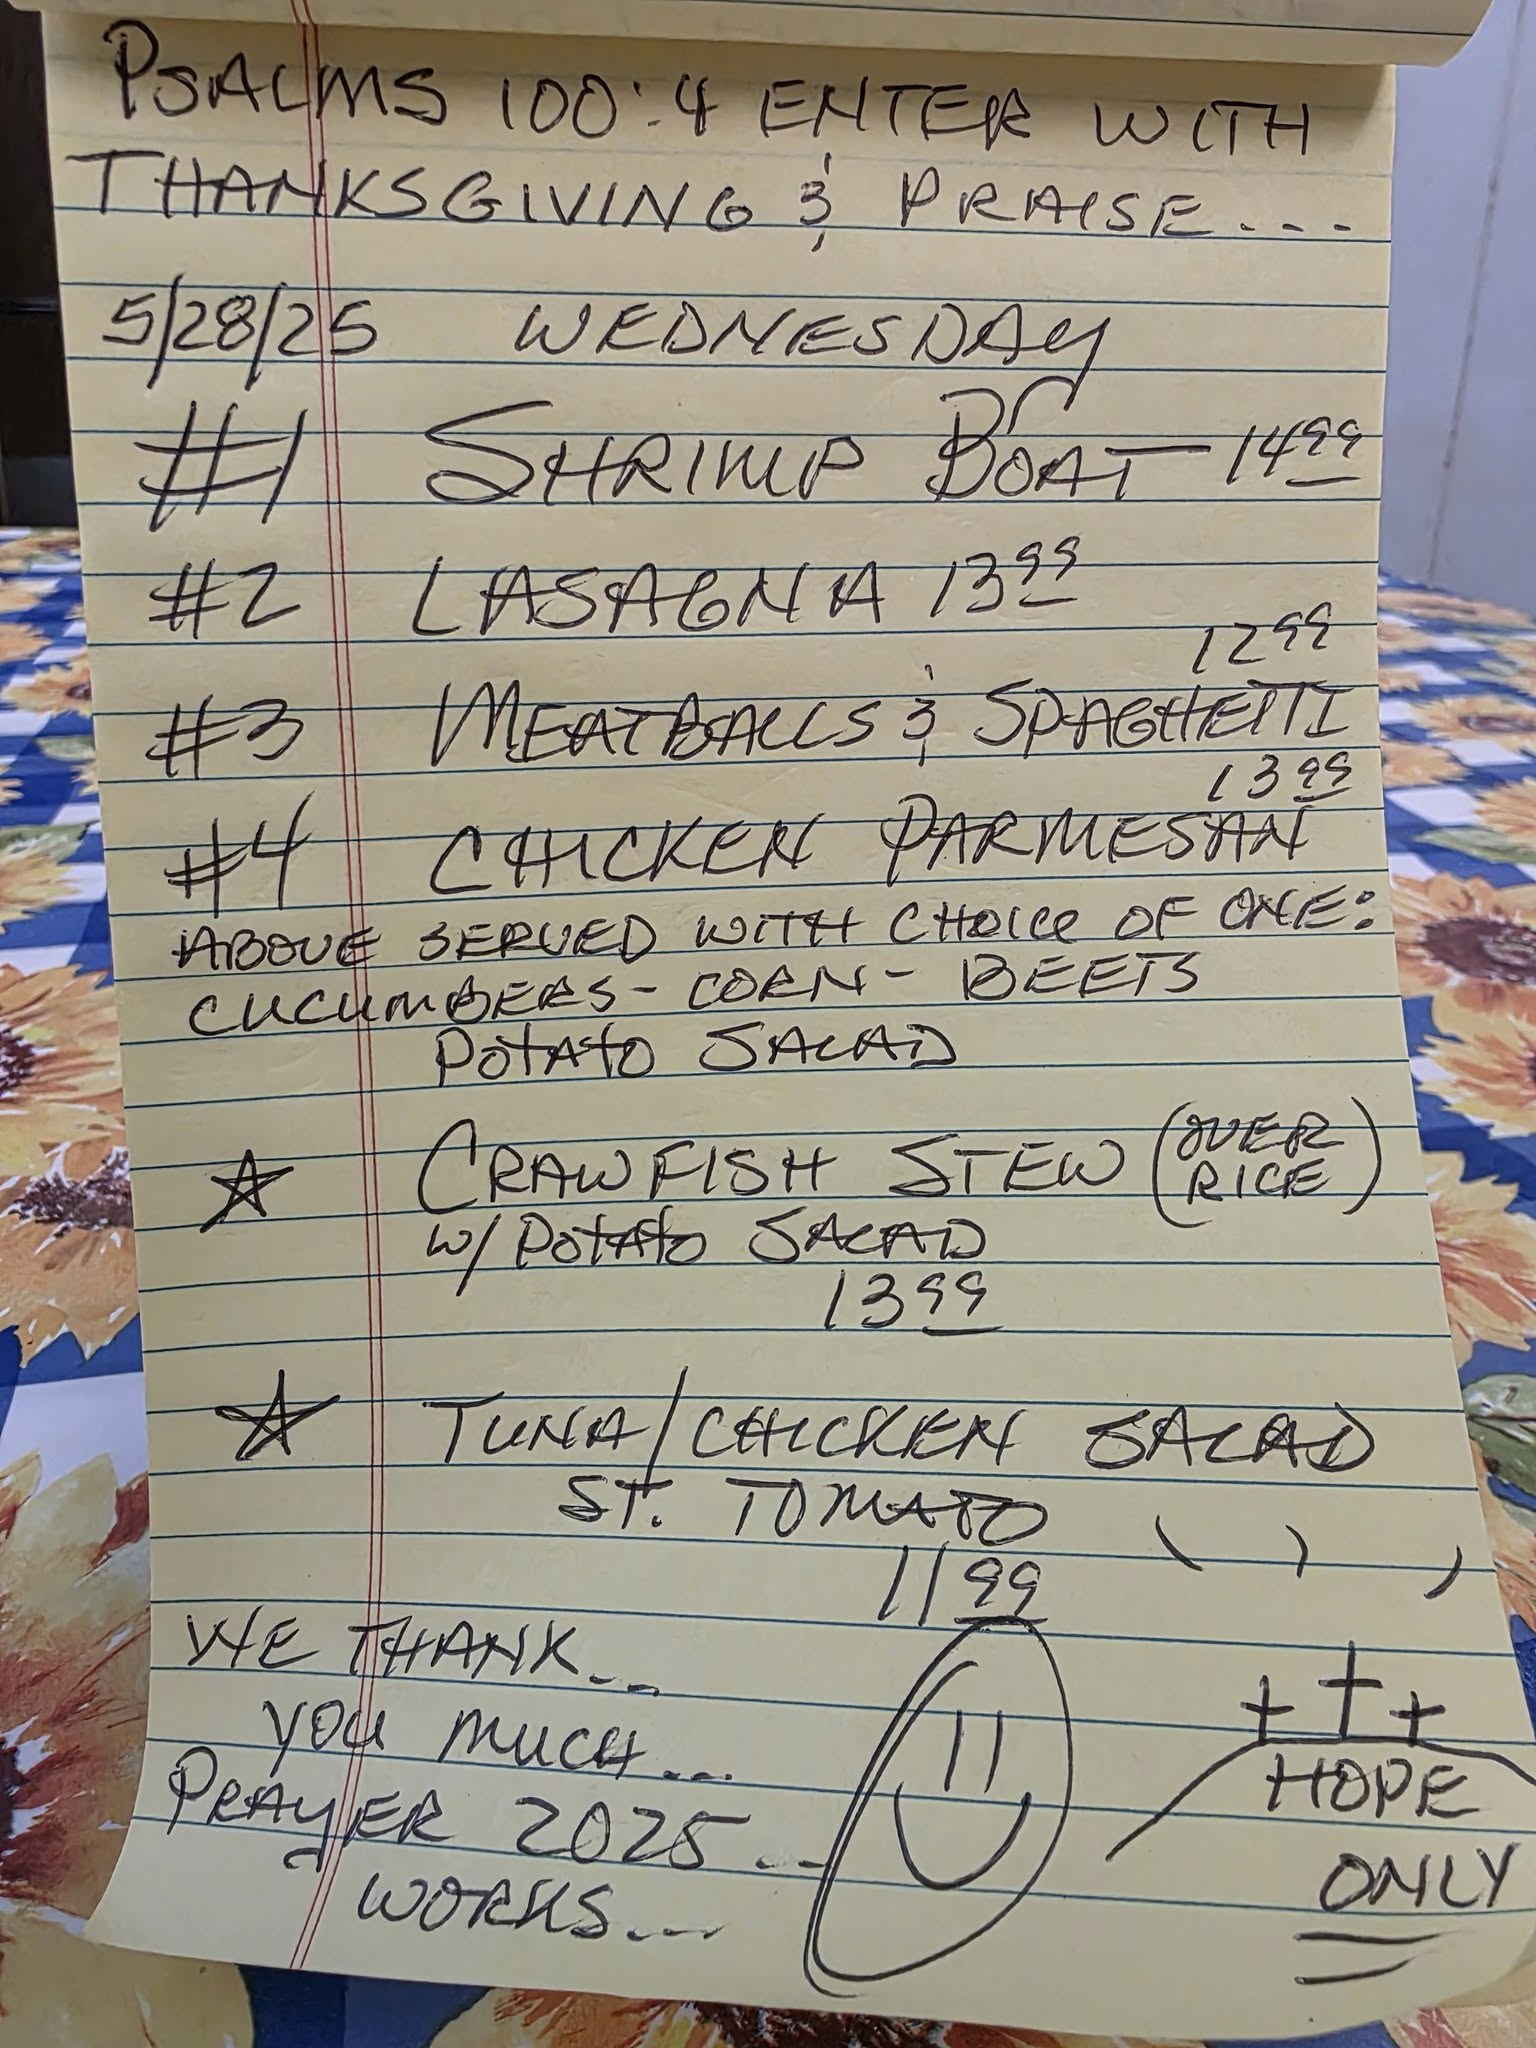 PSALMS 100:4 ENTER WITH
THANKSGIVING & PRAISE....
5/28/25 WEDNESDAY
#1 SHRIMP BOAT - 14 99
#2 LASAGNA 13 99
12 99
#3 MEATBALLS & SPAGHETTI
13 99
#4 CHICKEN PARMESAN
ABOVE SERVED WITH CHOICE OF ONE:
CUCUMBERS - CORN - BEETS
POTATO SALAD
☆ CRAWFISH STEW (OVER RICE)
W/ POTATO SALAD
13 99
☆ TUNA/CHICKEN SALAD
ST. TOMATO
11 99
WE THANK...
YOU MUCH...
PRAYER 2025...
WORKS....
HOPE
ONLY